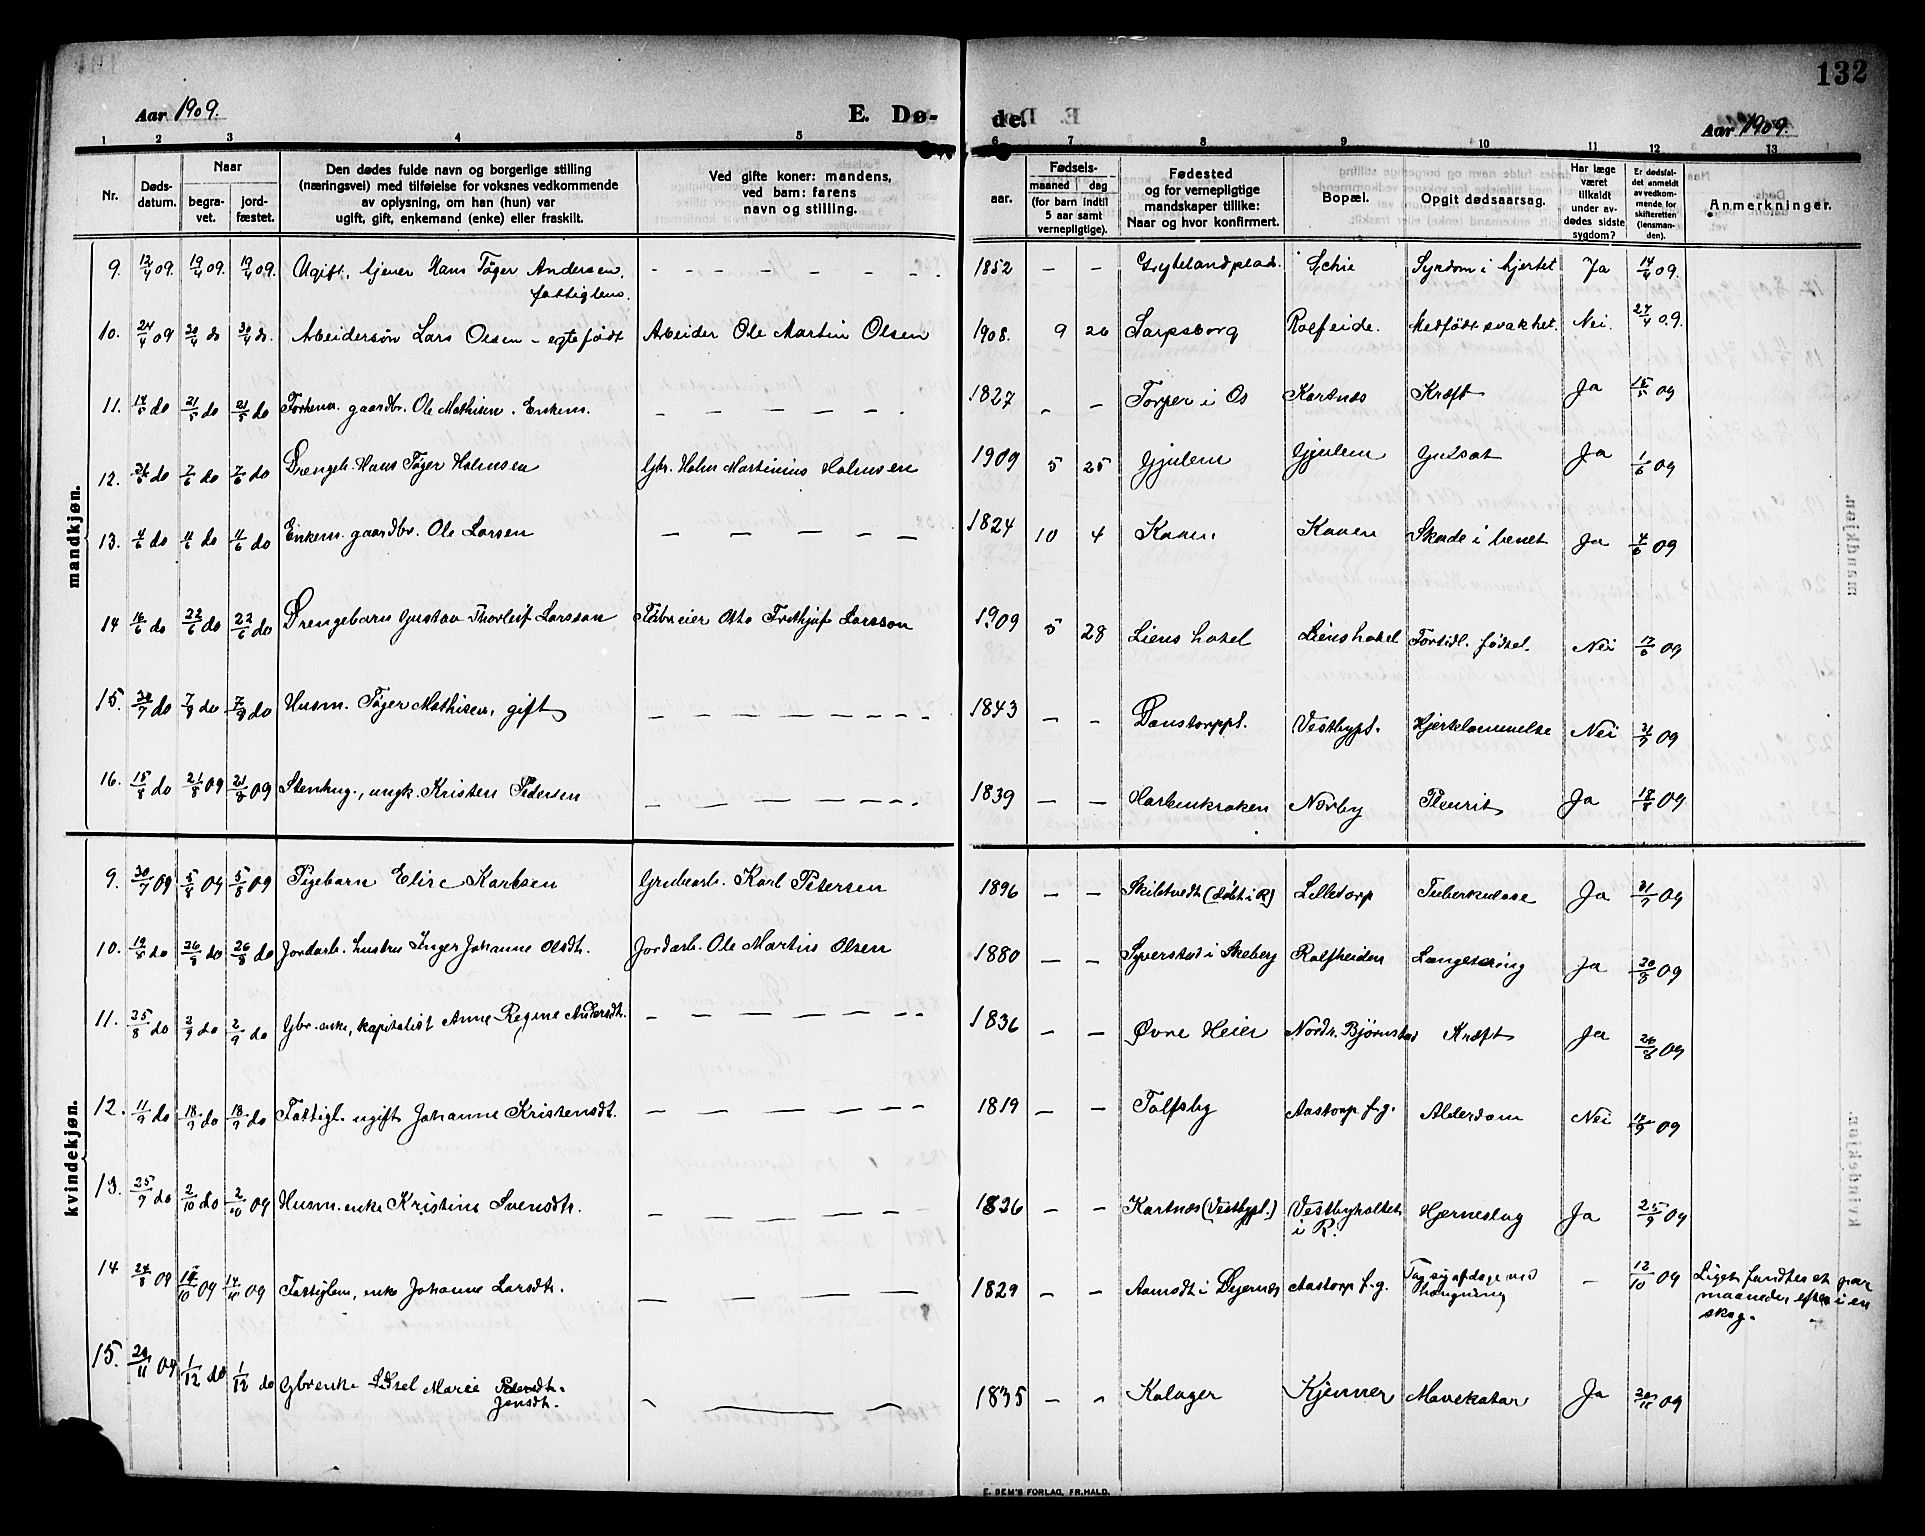 132
Aar 1909. E. Dø- de. Aar 1909.
1 2 3 4 5 6 7 8 9 10 11 12 13
Nr. Døds-datum. Naar begra-vet. jord-fæstet. Den dødes fulde navn og borgerlige stilling (næringsvei) med tilføielse for voksnes vedkommende av oplysning, om han (hun) var ugift, gift, enkemand (enke) eller fraskilt. Ved gifte koner: mandens, ved barn: farens navn og stilling. aar. Fødsels- maaned dag (for barn indtil 5 aar samt vernepligtige). Fødested og for vernepligtige mandskaper tillike: Naar og hvor konfirmert. Bopæl. Opgit dødsaarsag. Har læge været tilkaldt under av-dødes sidste sygdom? Er dødsfal-det anmeldt av vedkom-mende for skifteretten (lensman-den). Anmerkninger.
mandkjøn.
9. 12/4 09. 19/4 09. 19/4 09. Ugift, tjener Hans Tøger Andersen, fattiglem. — — — 1852 — — Schie Syrdom i hjertet Ja 14/4 09.
10. 24/4 09 30/4 do 30/4 do. Arbeidersøn Lars Olsen - egtefødt Arbeider Ole Martin Olsen 1908. 9 26 Sarpsborg Rolfeide. Medfødt svakhet. Nei. 27/4 09.
11. 14/5 do 21/5 do 21/5 do Forhenv. gaardbr. Ole Mathisen. Enkem. — — — 1827 — — Torper i Os Kartnæs Kræft Ja 15/5 09
12. 26/5 do 7/6 do 7/6 do Drengeb. Hans Tøger Holmsen Gbr. Holm Martinius Holmsen 1909 5 25 Gjulem Gjulem Gulsot Ja 1/6 09
13. 4/6 do 11/6 do 11/6 do Enkem. gaardbr. Ole Larsen — — — 1824 10 4 Kaven Kaven Skade i benet Ja 4/6 09
14 16/6 do 22/6 do 22/6 do Drengebarn Gustav Thorleif Larsson Fabreier Otto Frithjof Larsson 1909 5 28 Liens hotel Liens hotel Fortidl. fødsel. Nei 17/6 09
15. 30/7 do 7/8 do 7/8 do Husm. Tøger Mathisen, gift — — — 1843 — — Danstorppl. Vestbypl. Hjertelammelse Nei 31/7 09
16. 15/8 do 21/8 09 21/8 09 Stenhug., ungk. Kristen Pedersen — — — 1839 — — Nørby Pleurit Ja 18/8 09
kvindekjøn.
9. 30/7 09 5/8 09 5/8 09 Pigebarn Elise Karlsen Grubearb. Karl Petersen 1896 — — Skibtvedt (døbt i R) Lilletorp Tuberkulose Ja 31/7 09
10. 19/8 do 26/8 do 26/8 do Jordarb. hustru Inger Johanne Olsdt. Jordarb. Ole Martin Olsen 1880 — — Syverstad i Skeberg Rolfheiden Lungetæring Ja 20/8 09
11. 25/8 do 2/9 do 2/9 do Gbr. enke, kapitalist Anne Regine Andersdt. — — — 1836 — — Øvre Heier Nordr. Bjørnstad Kræft Ja 26/8 09
12. 11/9 do 18/9 do 18/9 do Fattigl. ugift Johanne Kristensdt. — — — 1819 — — Tolfsby Aastorp f.g. Alderdom Nei 13/9 09
13. 25/9 do 2/10 do 2/10 09 Husm. enke Kristine Svensdt. — — — 1826 — — Kartnæs (Vestbypl.) Vestbyholtet i R. Hjerneslag Ja 25/9 09
14 24/8 09 14/10 09 14/10 09 Fattiglem, enke Johanne Larsdt. — — — 1829 — — Aamodt i Degernæs Aastorp f.g. Tog sig af dage ved hængning — 12/10 09 Liget fandtes et par maaneder efter i en skog.
15. 20/11 09 1/12 do 1/12 do Gbr enke Sidsel Marie Pedersdt. Jensdt. — — — 1835 — — Kolager Kjenner Mavekatar Ja 20/11 09
E. SEM'S FORLAG, FR.HALD.